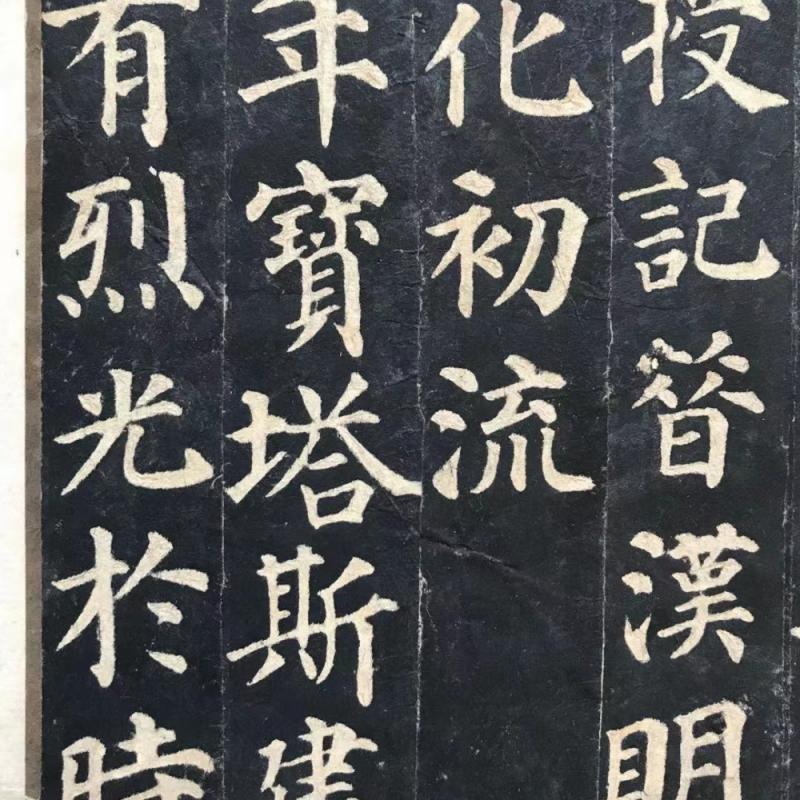 授記昔漢明
化初流
年寶塔斯建
有烈光於時